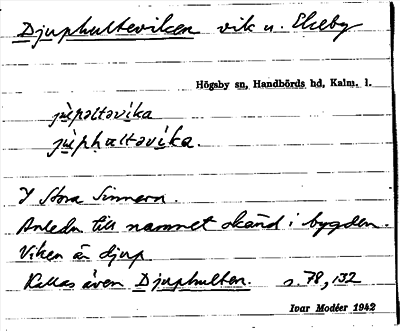 Djuphulteviken vik u. Ekeby
Högsby sn, Handbörds hd, Kalm. l.
jùpəltəvíka
jùpḥəltəvíka.
I Stora Sinnern.
Anledn. till namnet okänd i bygden.
Viken är djup.
Kallas även Djuphulten. s. 78, 132
Ivar Modéer 1942